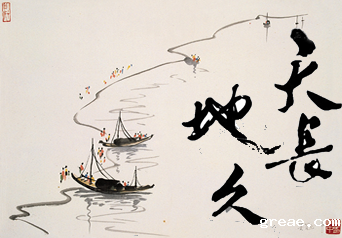 天長
地久
www.greae.com